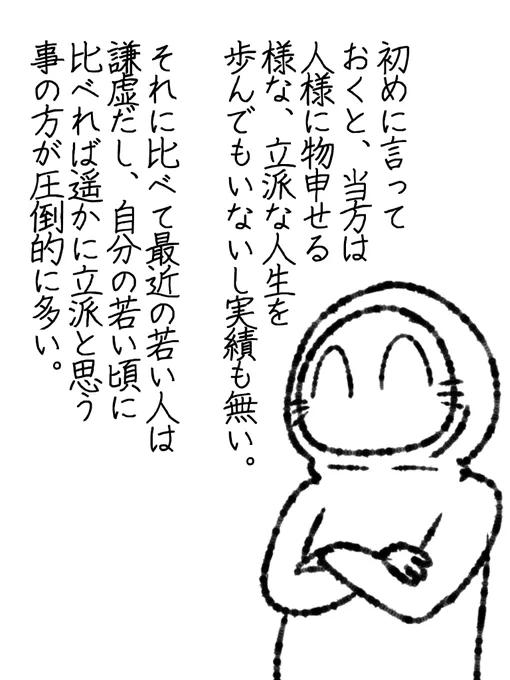 初めに言って
おくと、当方は
人様に物申せる
様な、立派な人生を
歩んでもいないし実績も無い。
それに比べて最近の若い人は
謙虚だし、自分の若い頃に
比べれば遥かに立派と思う
事の方が圧倒的に多い。